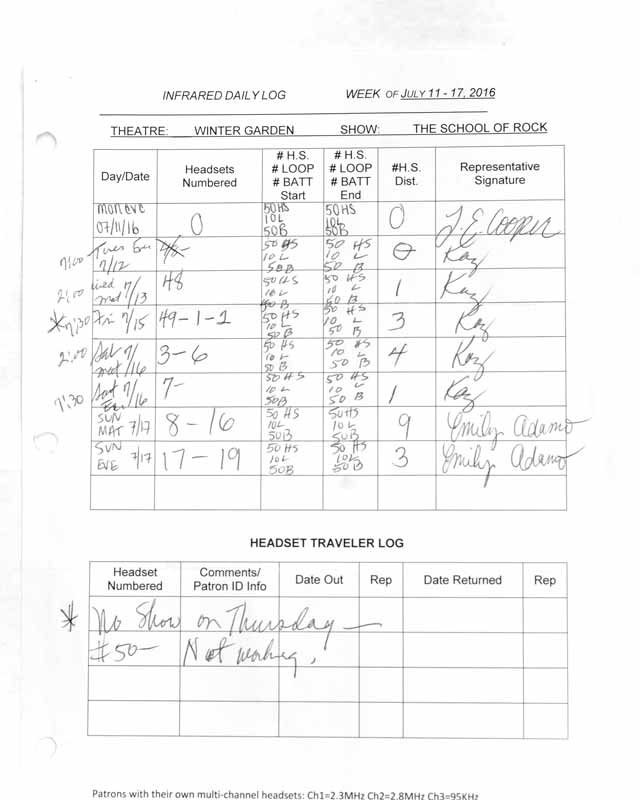 INFRARED DAILY LOG WEEK OF JULY 11 - 17, 2016
THEATRE: WINTER GARDEN SHOW: THE SCHOOL OF ROCK
Day/Date Headsets Numbered # H.S. # LOOP # BATT Start # H.S. # LOOP # BATT End #H.S. Dist. Representative Signature
MON EVE 07/11/16 0 50HS 10L 50B 50HS 10L 50B 0 J. E. Cooper
7:00 Tues Eve 7/12 50 HS 10 L 50B 50 HS 10 L 50 B 0 Kaz
2:00 Wed 7/13 mat 48 50 HS 10 L 50 B 50 HS 10 L 50 B 1 Kaz
* 7:30 Fri 7/15 49-1-2 50 HS 10 L 50B 50 HS 10 L 50 B 3 Kaz
2:00 Sat 7/16 mat 3-6 50 HS 10 L 50 B 50 HS 10 L 50 B 4 Kaz
7:30 Sat 7/16 Eve 7- 50 HS 10 L 50B 50 HS 10 L 50B 1 Kaz
SUN MAT 7/17 8-16 50 HS 10L 50B 50HS 10L 50B 9 Emily Adamo
SUN EVE 7/17 17-19 50 HS 10L 50B 50 HS 10L 50B 3 Emily Adamo
HEADSET TRAVELER LOG
Headset Numbered Comments/ Patron ID Info Date Out Rep Date Returned Rep
* No Show on Thursday —
#50- Not working.
Patrons with their own multi-channel headsets: Ch1=2.3MHz Ch2=2.8MHz Ch3=95KHz